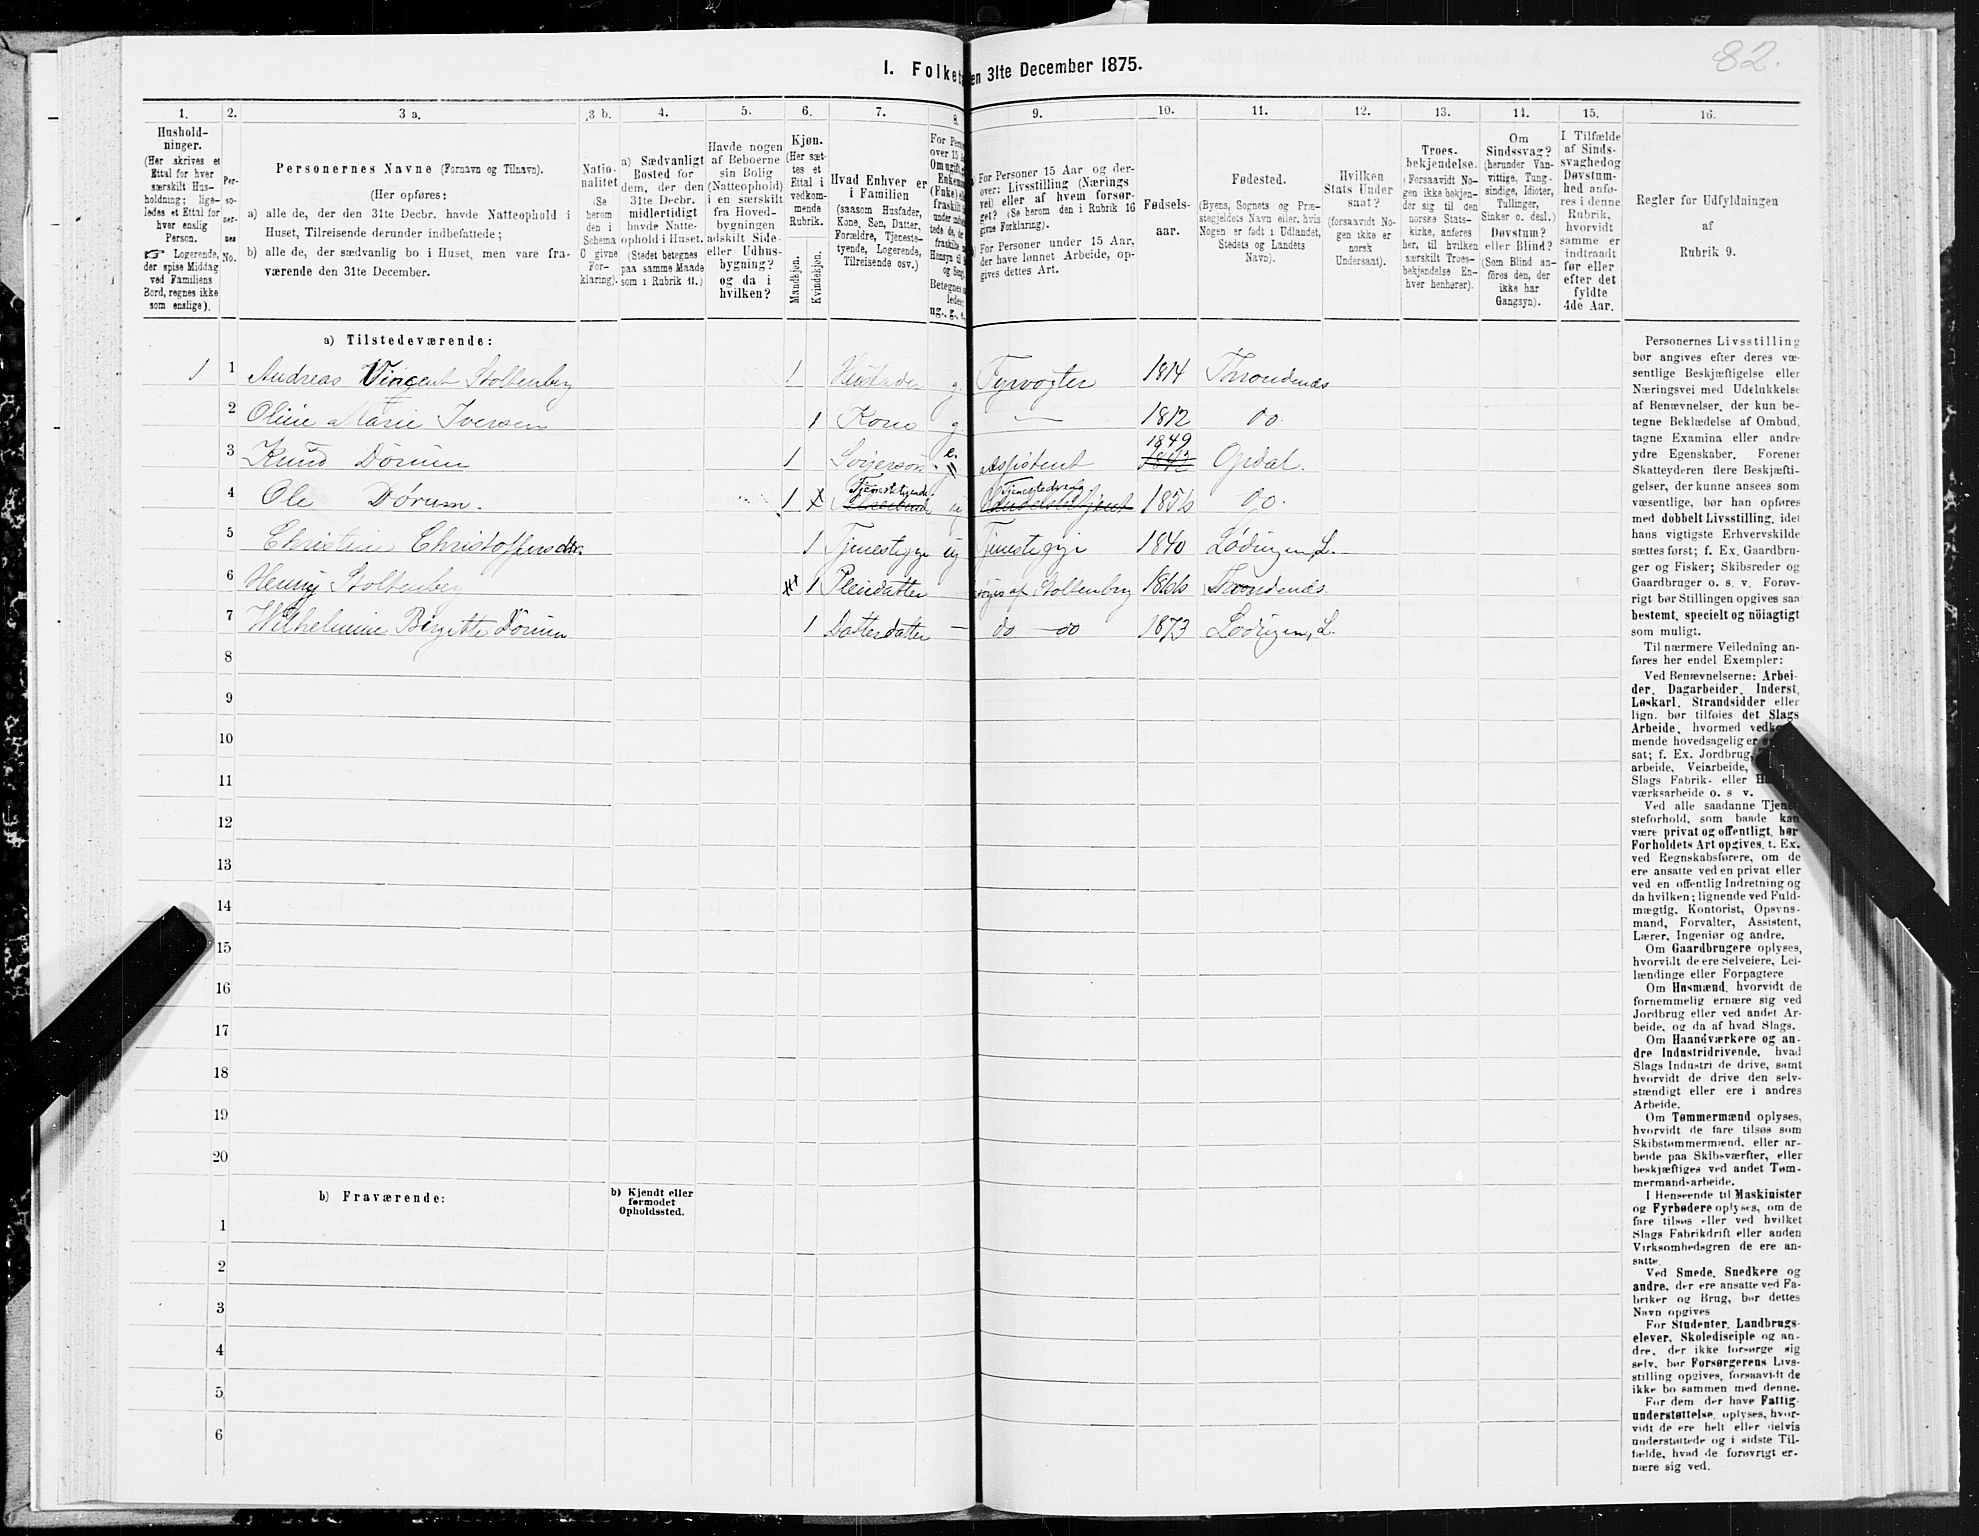 82.
I. Folket en 31te December 1875.
1. 2. 3 a. 3 b. 4. 5. 6. 7. 8. 9. 10. 11. 12. 13. 14. 15. 16.
Hushold-
ninger.
(Her skrives et
Ettal for hver
særskilt Hus-
holdning; lige-
ledes et Ettal for
hver enslig
Person.
☞ Logerende,
der spise Middag
ved Familiens
Bord, regnes ikke
som enslige).
Per-
so-
ner-
nes
No.
Personernes Navne (Fornavn og Tilnavn).
(Her opføres:
a) alle de, der den 31te Decbr. havde Natteophold i
Huset, Tilreisende derunder indbefattede;
b) alle de, der sædvanlig bo i Huset, men vare fra-
værende den 31te December.
Natio-
nalitet
(Se
herom
den i
Schema
C givne
For-
klaring).
a) Sædvanligt
Bosted for
dem, der den
31te Decbr.
midlertidigt
havde Natte-
ophold i Huset.
(Stedet betegnes
paa samme Maade
som i Rubrik 11.)
Havde nogen
af Beboerne
sin Bolig
(Natteophold)
i en særskilt
fra Hoved-
bygningen
adskilt Side-
eller Udhus-
bygning?
og da i
hvilken?
Kjøn.
(Her sæt-
tes et
Ettal i
vedkom-
mende
Rubrik.
Mandkjøn.
Kvindekjøn.
Hvad Enhver er
i Familien
(saasom Husfader,
Kone, Søn, Datter,
Forældre, Tjeneste-
tyende, Logerende,
Tilreisende osv.)
For Pers
over 15
Om ugift, g
Enkem
(Fnke) el
fraskilt
under indbe
tede de, de
fraskilte
Hensyn til
og Seng
Betegnes
ledes:
ug., g., e.,
For Personer 15 Aar og der-
over: Livsstilling (Nærings
vei) eller af hvem forsør-
get? (Se herom den i Rubrik 16
givne Forklaring).
For Personer under 15 Aar,
der have lønnet Arbeide, op-
gives dettes Art.
Fødsels-
aar.
Fødested.
(Byens, Sognets og Præ-
stegjeldets Navn eller, hvis
Nogen er født i Udlandet,
Stedets og Landets
Navn).
Hvilken
Stats Under
saat?
(forsaavidt No-
gen ikke er
norsk
Undersaat).
Troes-
bekjendelse.
(Forsaavidt No-
gen ikke bekjen-
der sig til den
norske Stats-
kirke, anføres
her, til hvilken
særskilt Troes-
bekjendelse En-
hver henhører).
Om
Sindssvag?
(herunder Van-
vittige, Tung-
sindige, Idioter,
Tullinger,
Sinker o. desl.)
Døvstum?
eller Blind?
(Som Blind an-
føres den, der
ikke har
Gangsyn).
I Tilfælde
af Sinds-
svaghedog
Døvstum-
hed anfø-
res i denne
Rubrik,
hvorvidt
samme er
indtraadt
før eller
efter det
fyldte
4de Aar.
Regler for Udfyldningen
af
Rubrik 9.
a) Tilstedeværende:
1 1 Andreas Vincent Stoltenberg 1 Husfader g Fyrvogter 1814 Throndenæs
2 Oline Marie Iversen 1 Kone g — 1812 do.
3 Knud Dørum 1 Svigersøn e. Assistent 1849 1842 Opdal.
4 Ole Dørum. 1 x Tjenestetyende ug Tjenestedreng 1856 do.
5 Christine Christoffersdtr. 1 Tjenestepige ug Tjenestepige 1840 Lødingen, L.
6 Henny Stoltenberg 1 Pleiedatter forsørges af Stoltenberg 1866 Throndenæs
7 Wilhelmine Birgitte Dørum 1 Datterdatter — do — do 1873 Lødingen, L.
8
9
10
11
12
13
14
15
16
17
18
19
20
b) Fraværende:
b) Kjendt eller
formodet
Opholdssted.
1
2
3
4
5
6
Personernes Livsstilling
bør angives efter deres væ-
sentlige Beskjæftigelse eller
Næringsvei med Udelukkelse
af Benævnelser, der kun be-
tegne Beklædelse af Ombud,
tagne Examina eller andre
ydre Egenskaber. Forener
Skatteyderen flere Beskjæfti-
gelser, der kunne ansees som
væsentlige, bør han opføres
med dobbelt Livsstilling, idet
hans vigtigste Erhvervskilde
sættes først; f. Ex. Gaardbru-
ger og Fisker; Skibsreder og
Gaardbruger o. s. v. Forøv-
rigt bør Stillingen opgives saa
bestemt, specielt og nöiagtigt
som muligt.
Til nærmere Veiledning an-
føres her endel Exempler:
Ved Benævnelserne: Arbei-
der, Dagarbeider, Inderst,
Løskarl, Strandsidder eller
lign. bør tilføies det Slags
Arbeide, hvormed vedkom-
mende hovedsagelig er
sat; f. Ex. Jordbrug,
arbeide, Veiarbeide,
Slags Fabrik- eller
værksarbeide o. s v.
Ved alle saadanne Tjene-
steforhold, som baade kan
være privat og offentligt, bør
Forholdets Art opgives, t. Ex.
ved Regnskabsførere, om de
ere ansatte ved en privat eller
ved en offentlig Indretning og
da hvilken; lignende ved Fuld-
mægtig, Kontorist, Opsyns-
mand, Forvalter, Assistent,
Lærer, Ingeniør og andre.
Om Gaardbrugere oplyses,
hvorvidt de ere Selveiere, Lei-
lændinge eller Forpagtere
Om Husmænd, hvorvidt de
fornemmelig ernære sig ved
Jordbrug eller ved andet Ar-
beide, og da af hvad Slags.
Om Haandværkere og an-
dre Industridrivende, hvad
Slags Industri de drive, samt
hvorvidt de drive den selv-
stændigt eller ere i andres
Arbeide.
Om Tømmermænd oplyses,
hvorvidt de fare tilsøs som
Skibstømmermænd, eller ar-
beide paa Skibsværfter, eller
beskjæftiges ved andet Tøm-
mermandsarbeide.
I Henseende til Maskinister
og Fyrbødere oplyses, om de
fare tilsøs eller ved hvilket
Slags Fabrikdrift eller anden
Virksomhedsgren de ere an-
satte
Ved Smede, Snedkere og
andre, der ere ansatte ved Fa-
briker og Brug, bør dettes
Navn opgives
For Studenter, Landbrugs-
elever, Skoledisciple og an-
dre, der ikke forsørge sig
selv, bør Forsørgerens Livs-
stilling opgives, forsaavidt de
ikke bo sammen med denne.
For dem, der have Fattig-
understøttelse, oplyses, hvor-
vidt de ere helt eller delvis
understøttede og i sidste Til-
fælde, hvad de forøvrigt er-
nære sig ved.